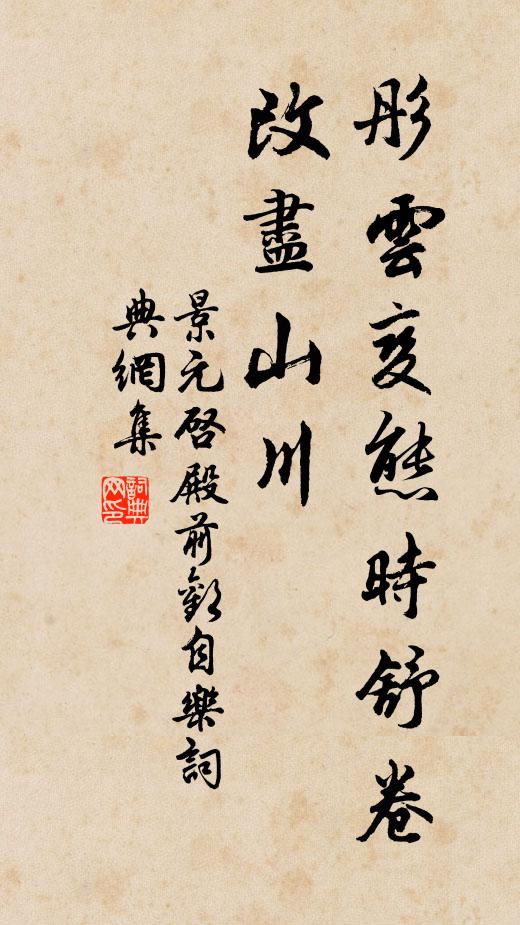 彤雲變態時舒卷
改盡山川
景元啓殿前歡自樂詞
典網集
詞典網印